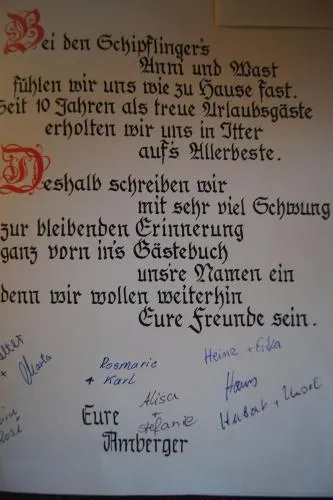 Bei den Schipflinger's
Anni und Wast
fühlen wir uns wie zu Hause fast.
Seit 10 Jahren als treue Urlaubsgäste
erholten wir uns in Itter
auf's Allerbeste.
Deshalb schreiben wir
mit sehr viel Schwung
zur bleibenden Erinnerung
ganz vorn in's Gästebuch
uns're Namen ein
denn wir wollen weiterhin
Eure Freunde sein.
Heinz + Erika
+ Maria
Rosmarie
+ Karl
Hans
Alisa
+
Stefanie
Eure
Amberger